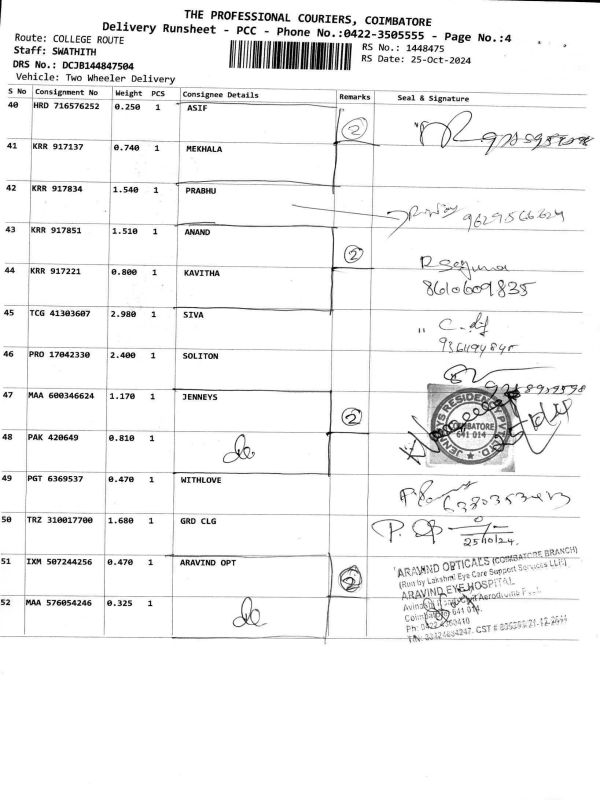 THE PROFESSIONAL COURIERS, COIMBATORE
Delivery Runsheet - PCC - Phone No.:0422-3505555 - Page No.:4
Route: COLLEGE ROUTE
RS No.: 1448475
Staff: SWATHITH
RS Date: 25-Oct-2024
DRS No.: DCJB144847504
Vehicle: Two Wheeler Delivery
S No Consignment No Weight PCS Consignee Details Remarks Seal & Signature
40 HRD 716576252 0.250 1 ASIF 2
41 KRR 917137 0.740 1 MEKHALA
42 KRR 917834 1.540 1 PRABHU
9629566624
43 KRR 917851 1.510 1 ANAND 2
44 KRR 917221 0.800 1 KAVITHA
8610609835
45 TCG 41303607 2.980 1 SIVA
46 PRO 17042330 2.400 1 SOLITON
47 MAA 600346624 1.170 1 JENNEYS 2
JENNEYS RESIDENCY PVT LTD.
COIMBATORE
641 014
48 PAK 420649 0.810 1 do
49 PGT 6369537 0.470 1 WITHLOVE
50 TRZ 310017700 1.680 1 GRD CLG
25/10/24.
51 IXM 507244256 0.470 1 ARAVIND OPT 2
ARAVIND OPTICALS (COIMBATORE BRANCH)
(Run by Lakshmi Eye Care Support Services LLP)
ARAVIND EYE HOSPITAL
52 MAA 576054246 0.325 1 do
Coimbatore 641 014.